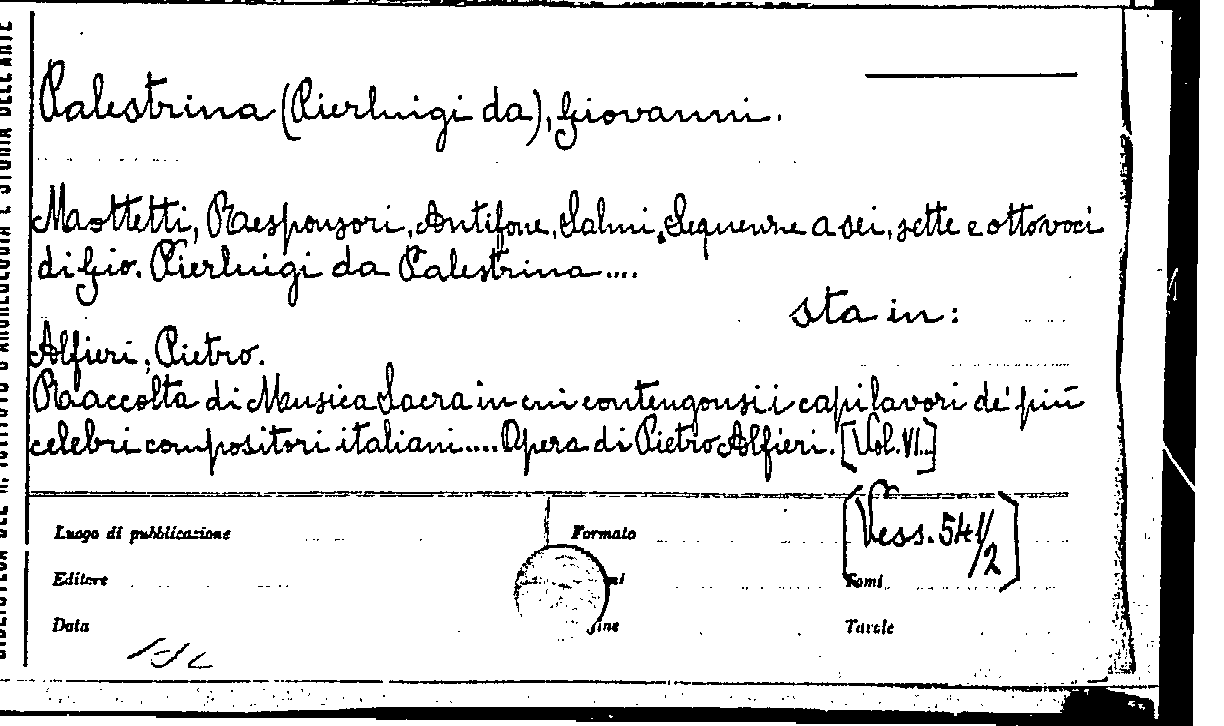 BIBLIOTECA DEL R. ISTITUTO D'ARCHEOLOGIA E STORIA DELL'ARTE
Palestrina (Pierluigi da), Giovanni.
Mottetti, Responsori, Antifone, Salmi, Sequenze a sei, sette e otto voci
di Gio. Pierluigi da Palestrina....
sta in:
Alfieri, Pietro.
Raccolta di Musica Sacra in cui contengonsi i capilavori de' più
celebri compositori italiani.... Opera di Pietro Alfieri. [Vol. VI..]
[Vess. 541/2]
Luogo di pubblicazione
Formato
Editore
Tomi
Data
Tavole